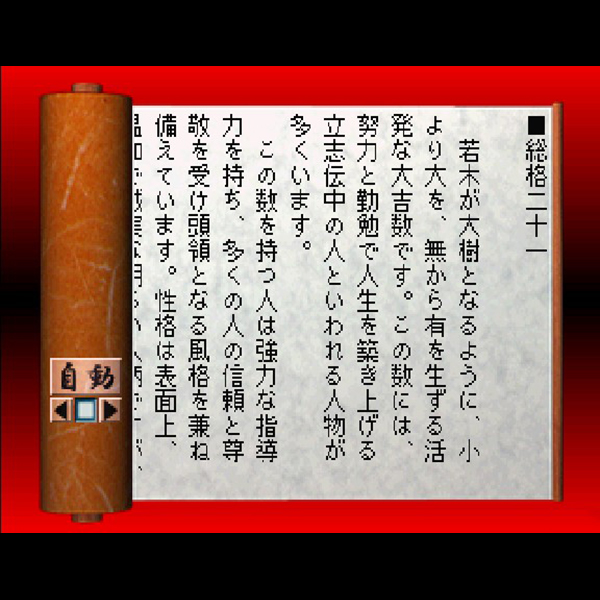 ■総格二十一
若木が大樹となるように、小
より大を、無から有を生ずる活
発な大吉数です。この数には、
努力と勤勉で人生を築き上げる
立志伝中の人といわれる人物が
多くいます。
この数を持つ人は強力な指導
力を持ち、多くの人の信頼と尊
敬を受け頭領となる風格を兼ね
備えています。性格は表面上、
自動